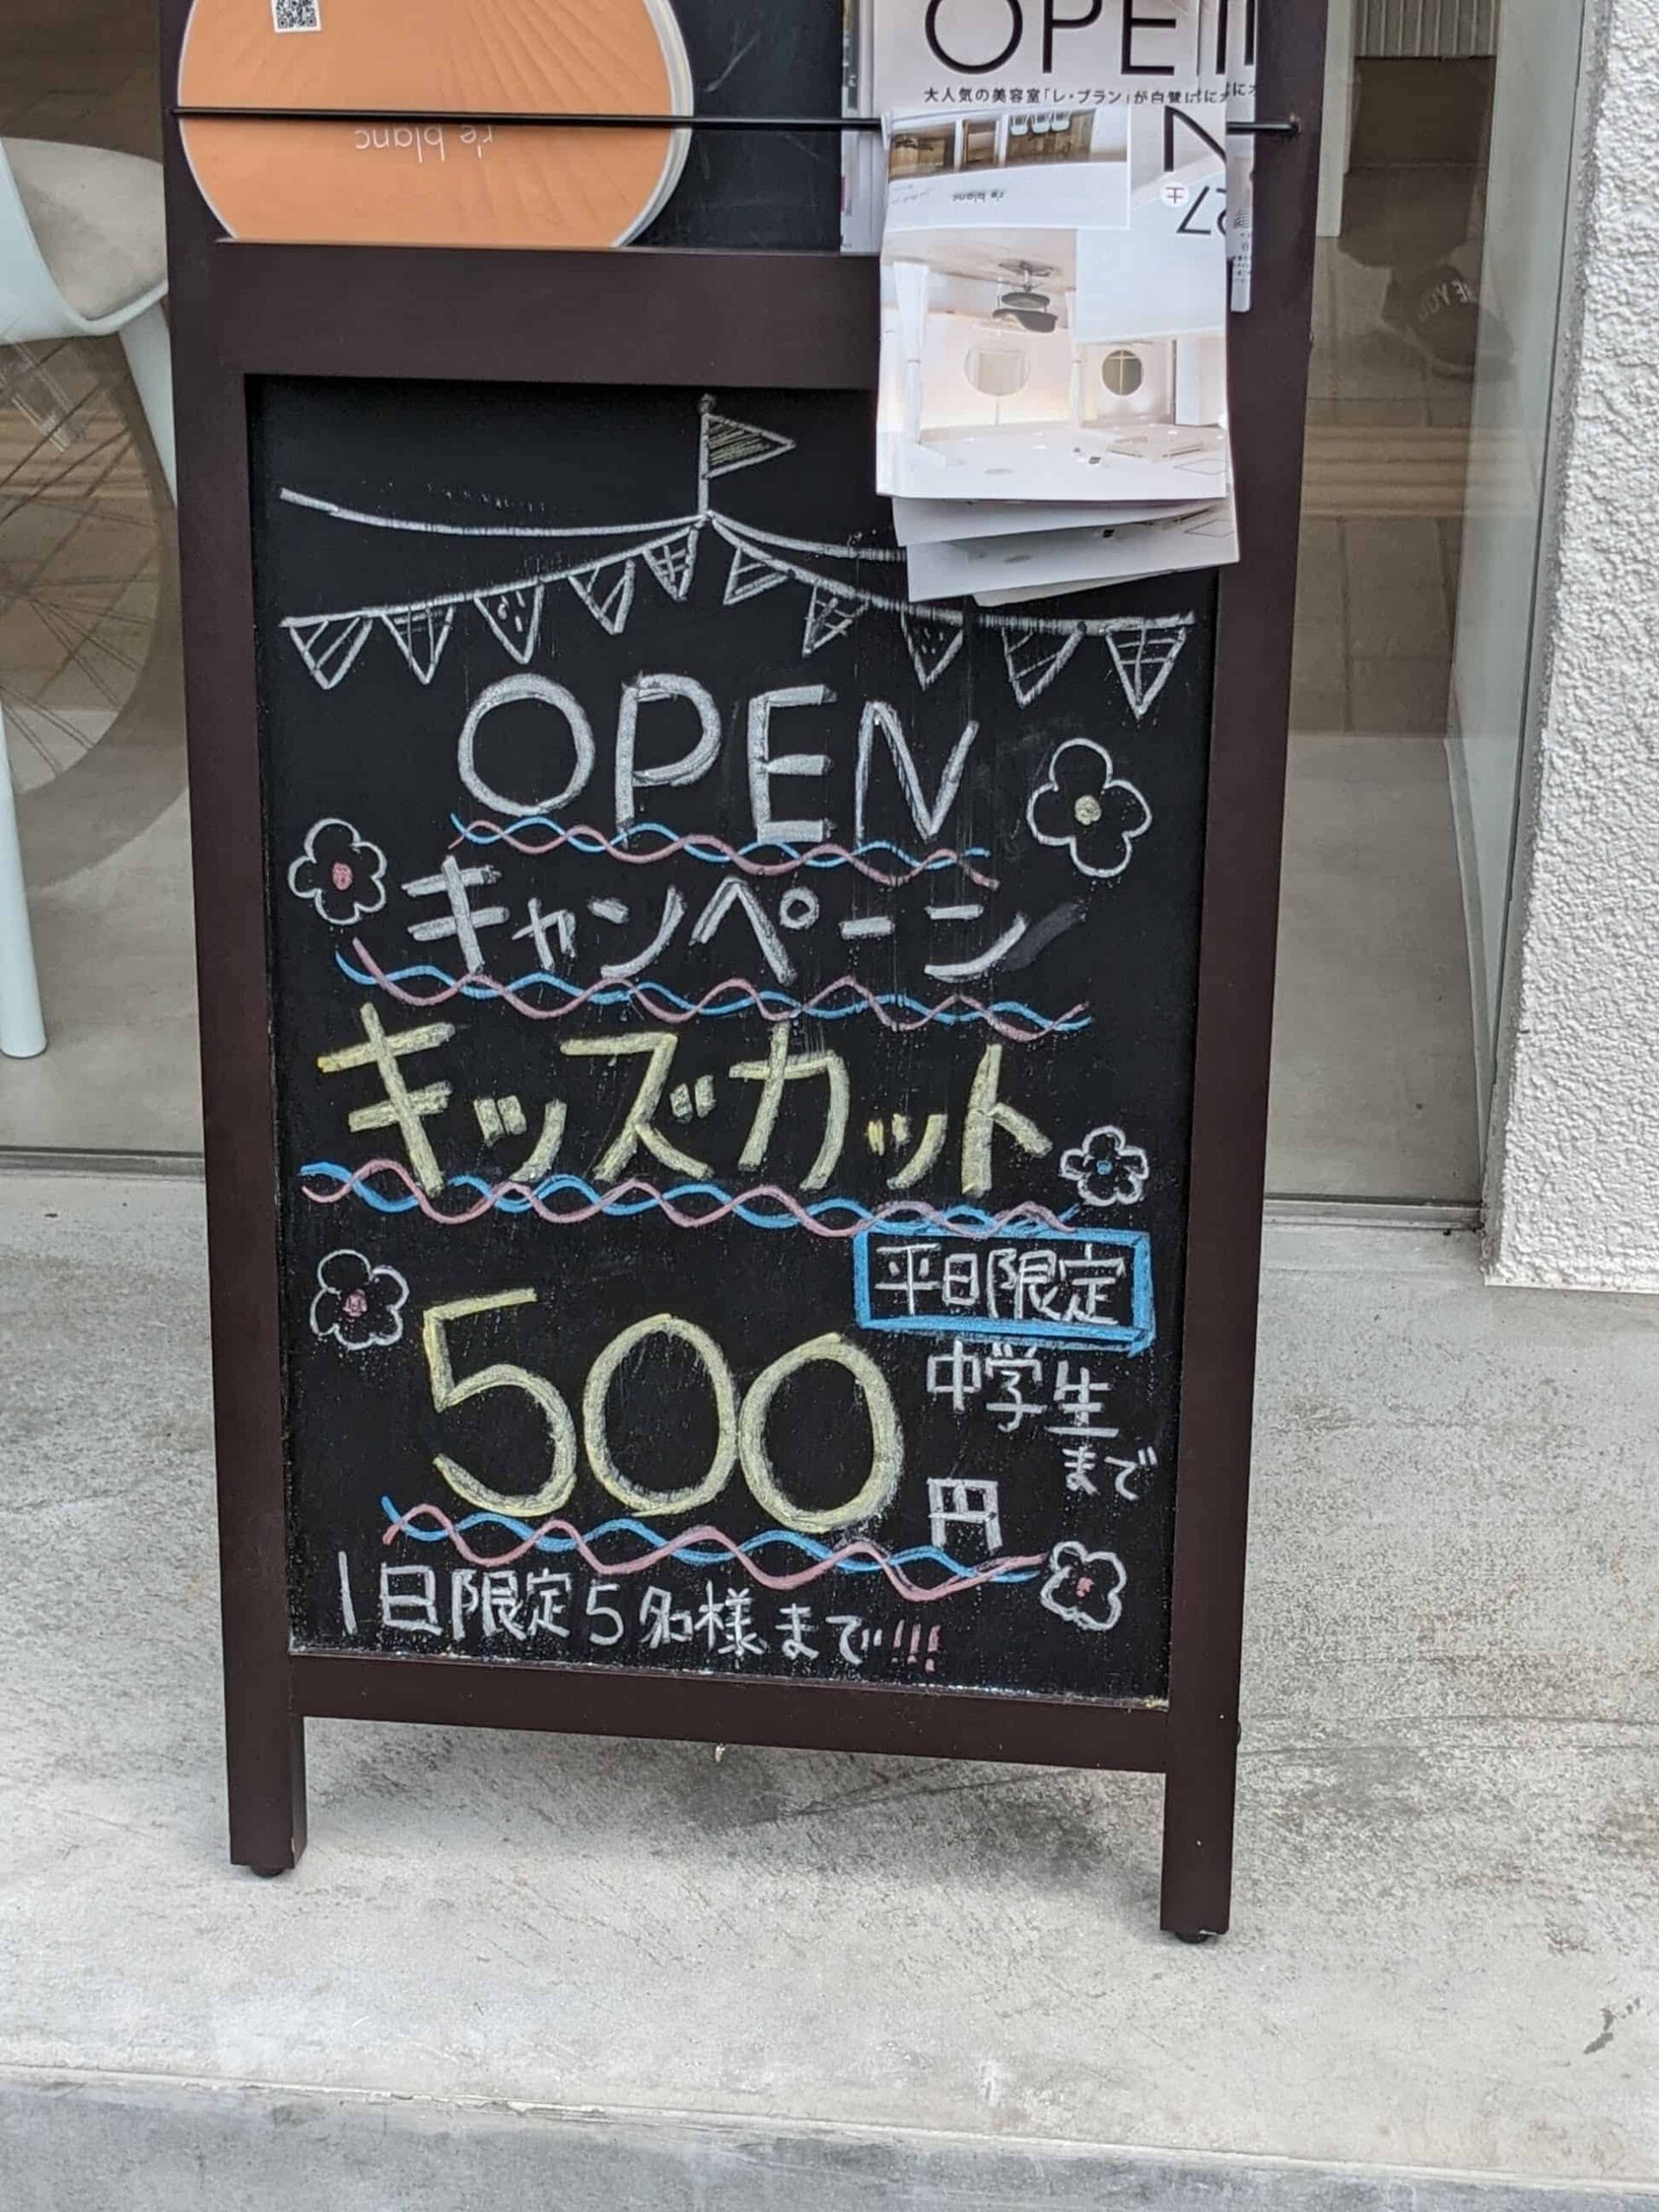 OPEN
大人気の美容室「レ・ブラン」が白鷺に
re blanc
re blanc
OPEN
キャンペーン
キッズカット
平日限定
500円
中学生
まで
1日限定5名様まで!!!